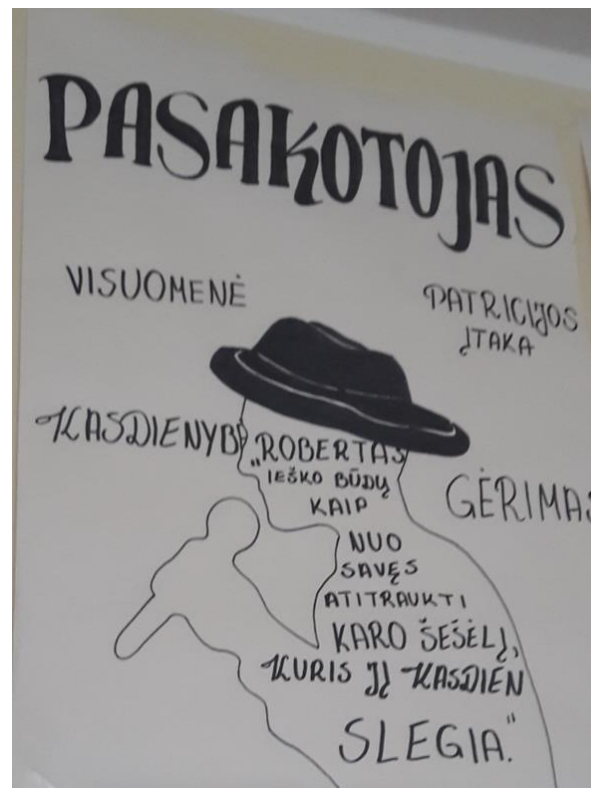 PASAKOTOJAS
VISUOMENĖ
PATRICIJOS
ĮTAKA
KASDIENYBĖ
GĖRIMAS
„ROBERTAS
IEŠKO BŪDŲ
KAIP
NUO
SAVĘS
ATITRAUKTI
KARO ŠEŠĖLĮ,
KURIS JĮ KASDIEN
SLEGIA.“